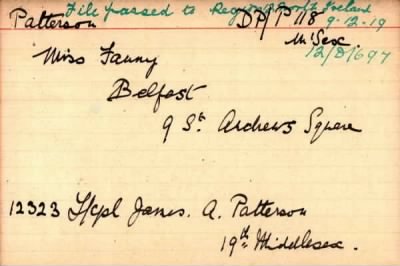 File passed to Regional Ireland
Patterson DP/P 118 9-12-19
M'Sex.
12/D/697
Miss Fanny
Belfast
9 St. Andrews Square
12323 L/cpl James. A. Patterson
19th Middlesex.